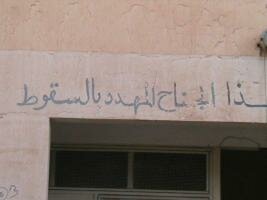 ـذا الجناح المهدد بالسقوط